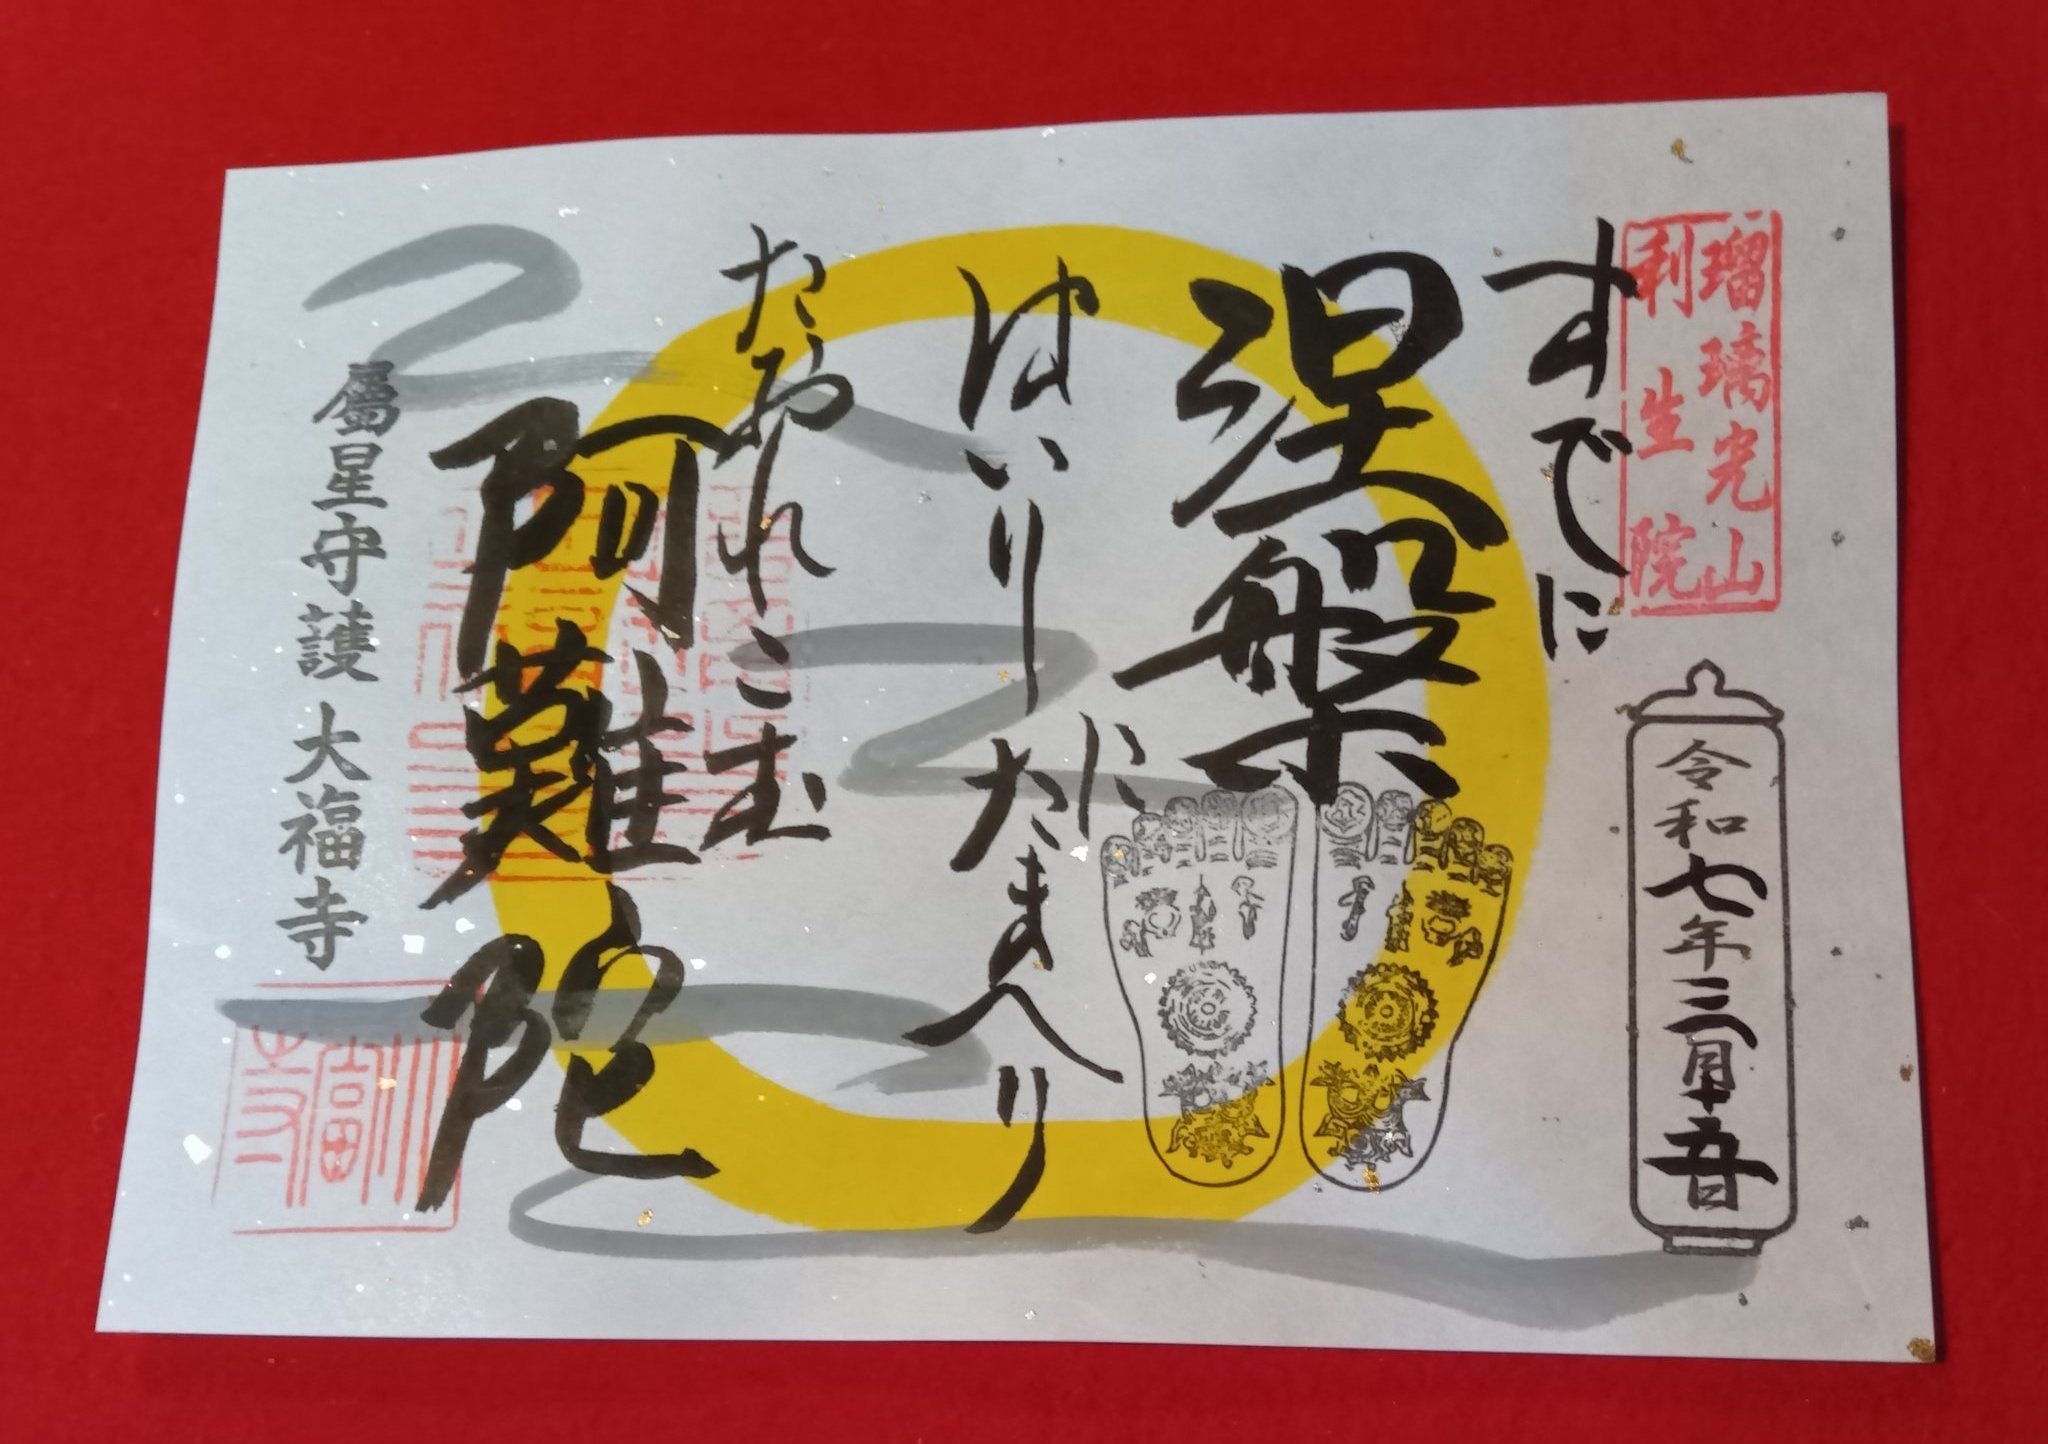 瑠璃光山
利生院
令和七年三月十五日
すでに
涅槃に
はいりたまへり
たおれこむ
阿難陀
屬星守護 大福寺